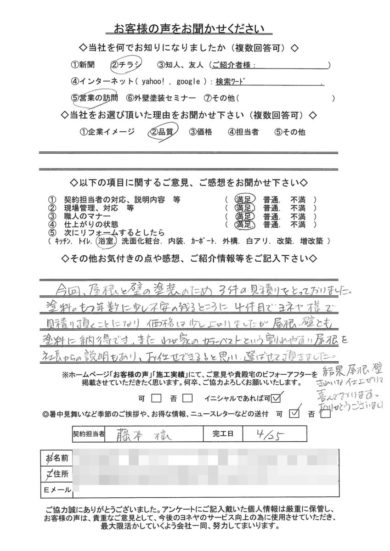 お客様の声をお聞かせください
◇当社を何でお知りになりましたか（複数回答可）◇
①新聞 ②チラシ ③知人、友人（ご紹介者様： ）
④インターネット( yahoo! . google )：検索ワード
⑤営業の訪問 ⑥外壁塗装セミナー ⑦その他( )
◇当社をお選び頂いた理由をお聞かせ下さい（複数回答可）◇
①企業イメージ ②品質 ③価格 ④担当者 ⑤その他
◇以下の項目に関するご意見、ご感想をお聞かせ下さい◇
① 契約担当者の対応、説明内容 等 （ 満足 普通. 不満 ）
② 現場管理、対応 等 （ 満足 普通. 不満 ）
③ 職人のマナー （ 満足 普通. 不満 ）
④ 仕上がりの状態 （ 満足 普通. 不満 ）
⑤ 次にリフォームするとしたら
( キッチン. トイレ. 浴室. 洗面化粧台. 内装. カーポート. 外構. 白アリ. 改築. 増改築 )
◇その他お気付きの点や感想、ご紹介情報等をご記入下さい◇
今回、屋根と壁の塗装のため 3件の見積りをとっておりました。
塗料のもつ年数に少し不安の残るところに 4件目でヨネヤ様で
見積り頂くことになり 価格は少し上がりましたが 屋根、壁とも
塗料に納得です。また わが家の
社長からの説明もあり、お任せできると思い 選ばせて頂きました。
※ホームページ「お客様の声」「施工実績」にて、ご意見や貴殿宅のビフォーアフターを
掲載させていただきたく思います。何卒、ご協力よろしくお願いします。
結果屋根、壁
きれいな仕上がりに
喜んでおります。
ありがとうございました
可 否 イニシャルであれば可
◎暑中見舞いなど季節のご挨拶や、お得な情報、ニュースレターなどの送付 可 否
契約担当者 藤本 様 完工日 4/25
お名前
ご住所
Eメール
ご協力誠にありがとうございました。アンケートにご記入戴いた個人情報は厳重に保管し、
お客様の声は、貴重なご意見として、今後のヨネヤのサービス向上の為に使用させていただき、
最大限活かしていくよう会社一同、努力してまいります。